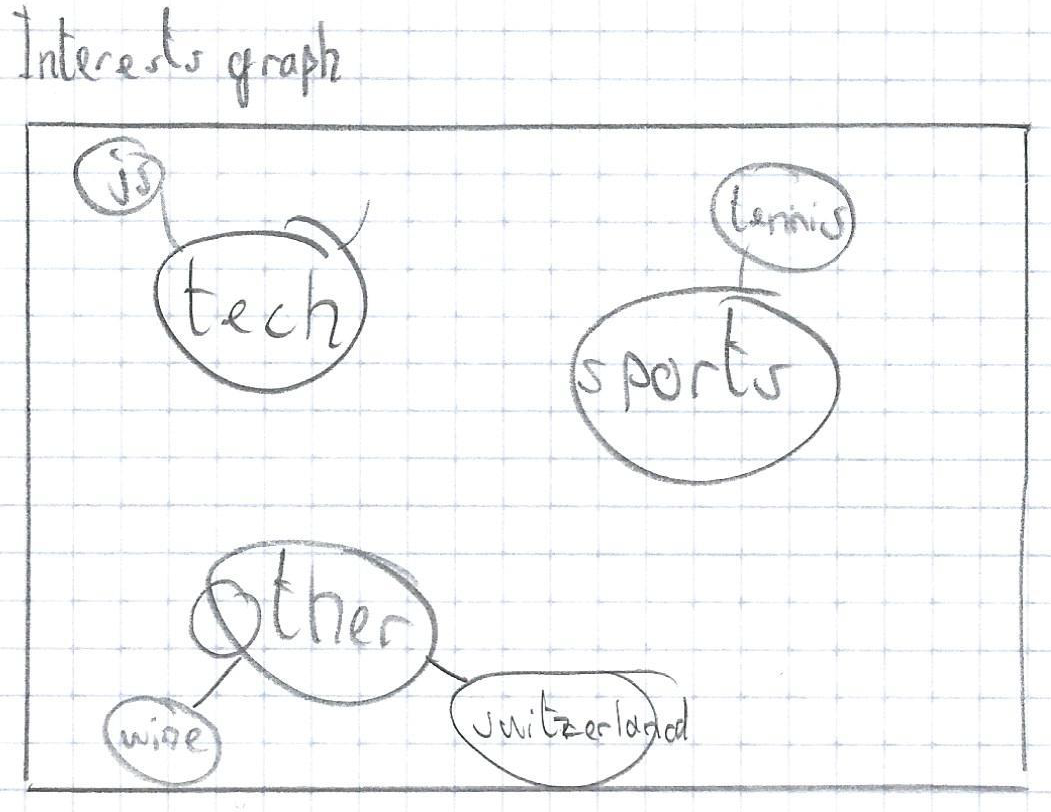 Interests graph
js
tennis
tech
sports
other
wine
switzerland